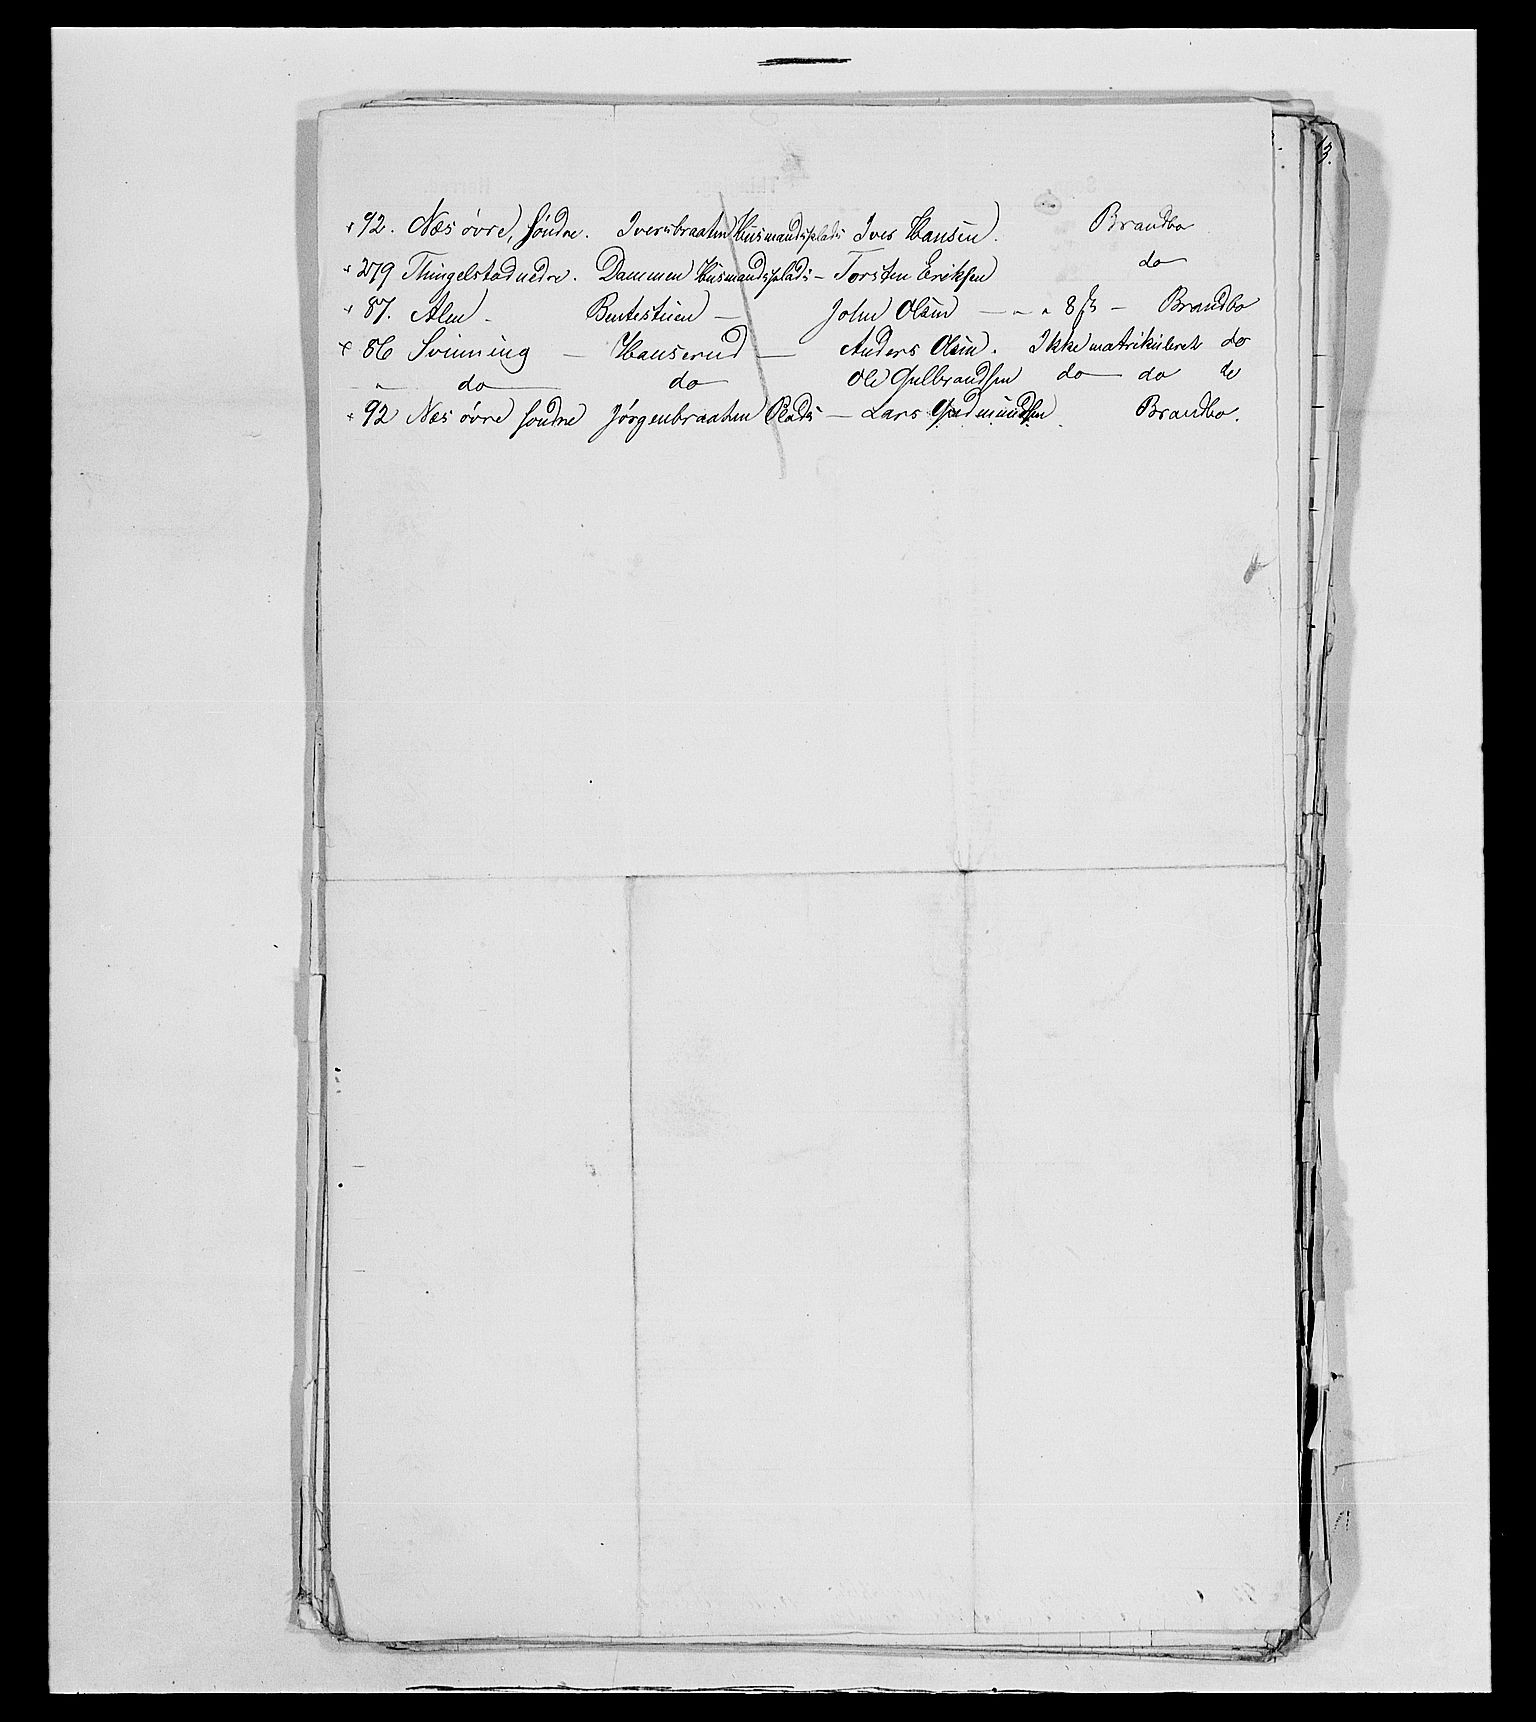 13.
+ 92. Næs øvre, søndre. Iversbraaten Husmandsplads Iver Hansen. Brandbo
+ 279 Thingelstad nedre. Dammen Husmandsplads – Torsten Eriksen do
+ 87. Alm – Bentestuen — John Olsen — " " 8 ß – Brandbo
+ 86 Svinning — Hanserud — Anders Olsen. Ikke matrikuleret do
" do — do Ole Gulbrandsen do — do do
+ 92 Næs øvre søndre Jørgenbraaten Plads — Lars Gudmundsen Brandbo.